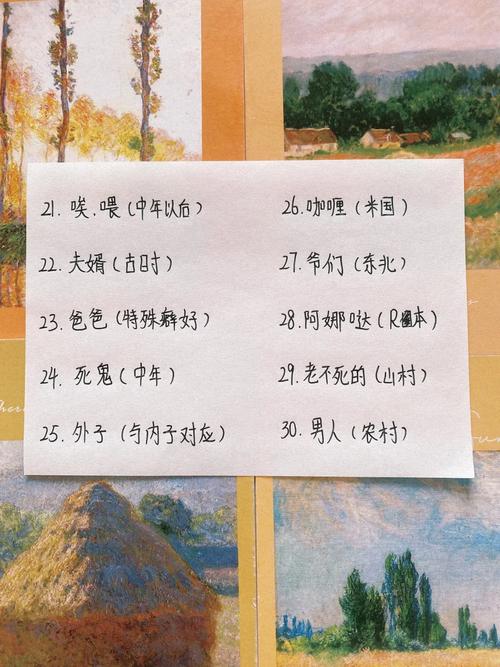 21. 唉.喂(中年以后)
22. 夫婿(古时)
23. 爸爸(特殊癖好)
24. 死鬼(中年)
25. 外子(与内子对应)
26. 咖喱(米国)
27. 爷们(东北)
28. 阿娜哒(R本)
29. 老不死的(山村)
30. 男人(农村)